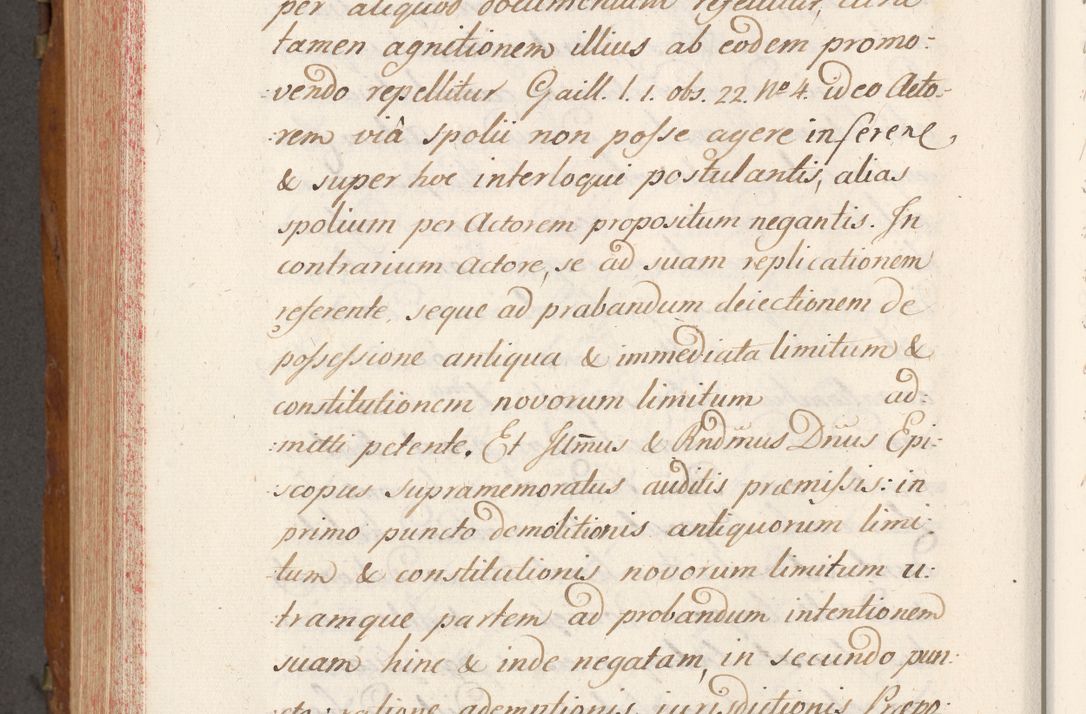 per aliquod documentum refellitur, citra
tamen agnitionem illius ab eodem promo:
:vendo repellitur Gaill. l. 1. obs. 22. Nº 4. ideo Acto:
:rem viâ spolii non posse agere inferente,
& super hoc interloqui postulantis, alias
spolium per Actorem propositum negantis. In
contrarium Actore, se ad suam replicationem
referente, seque ad probandum deiectionem de
possessione antiqua & immediata limitum &
constitutionem novorum limitum ad:
:mitti petente. Et Illmus & Rndmus Dnus Epi:
:scopus supramemoratus auditis præmissis: in
primo puncto demolitionis antiquorum limi:
:tum & constitutionis novorum limitum u:
:tramque partem ad probandum intentionem
suam hinc & inde negatam, in secundo pun:
:cto ratione ademptionis jurisdictionis Præpo: